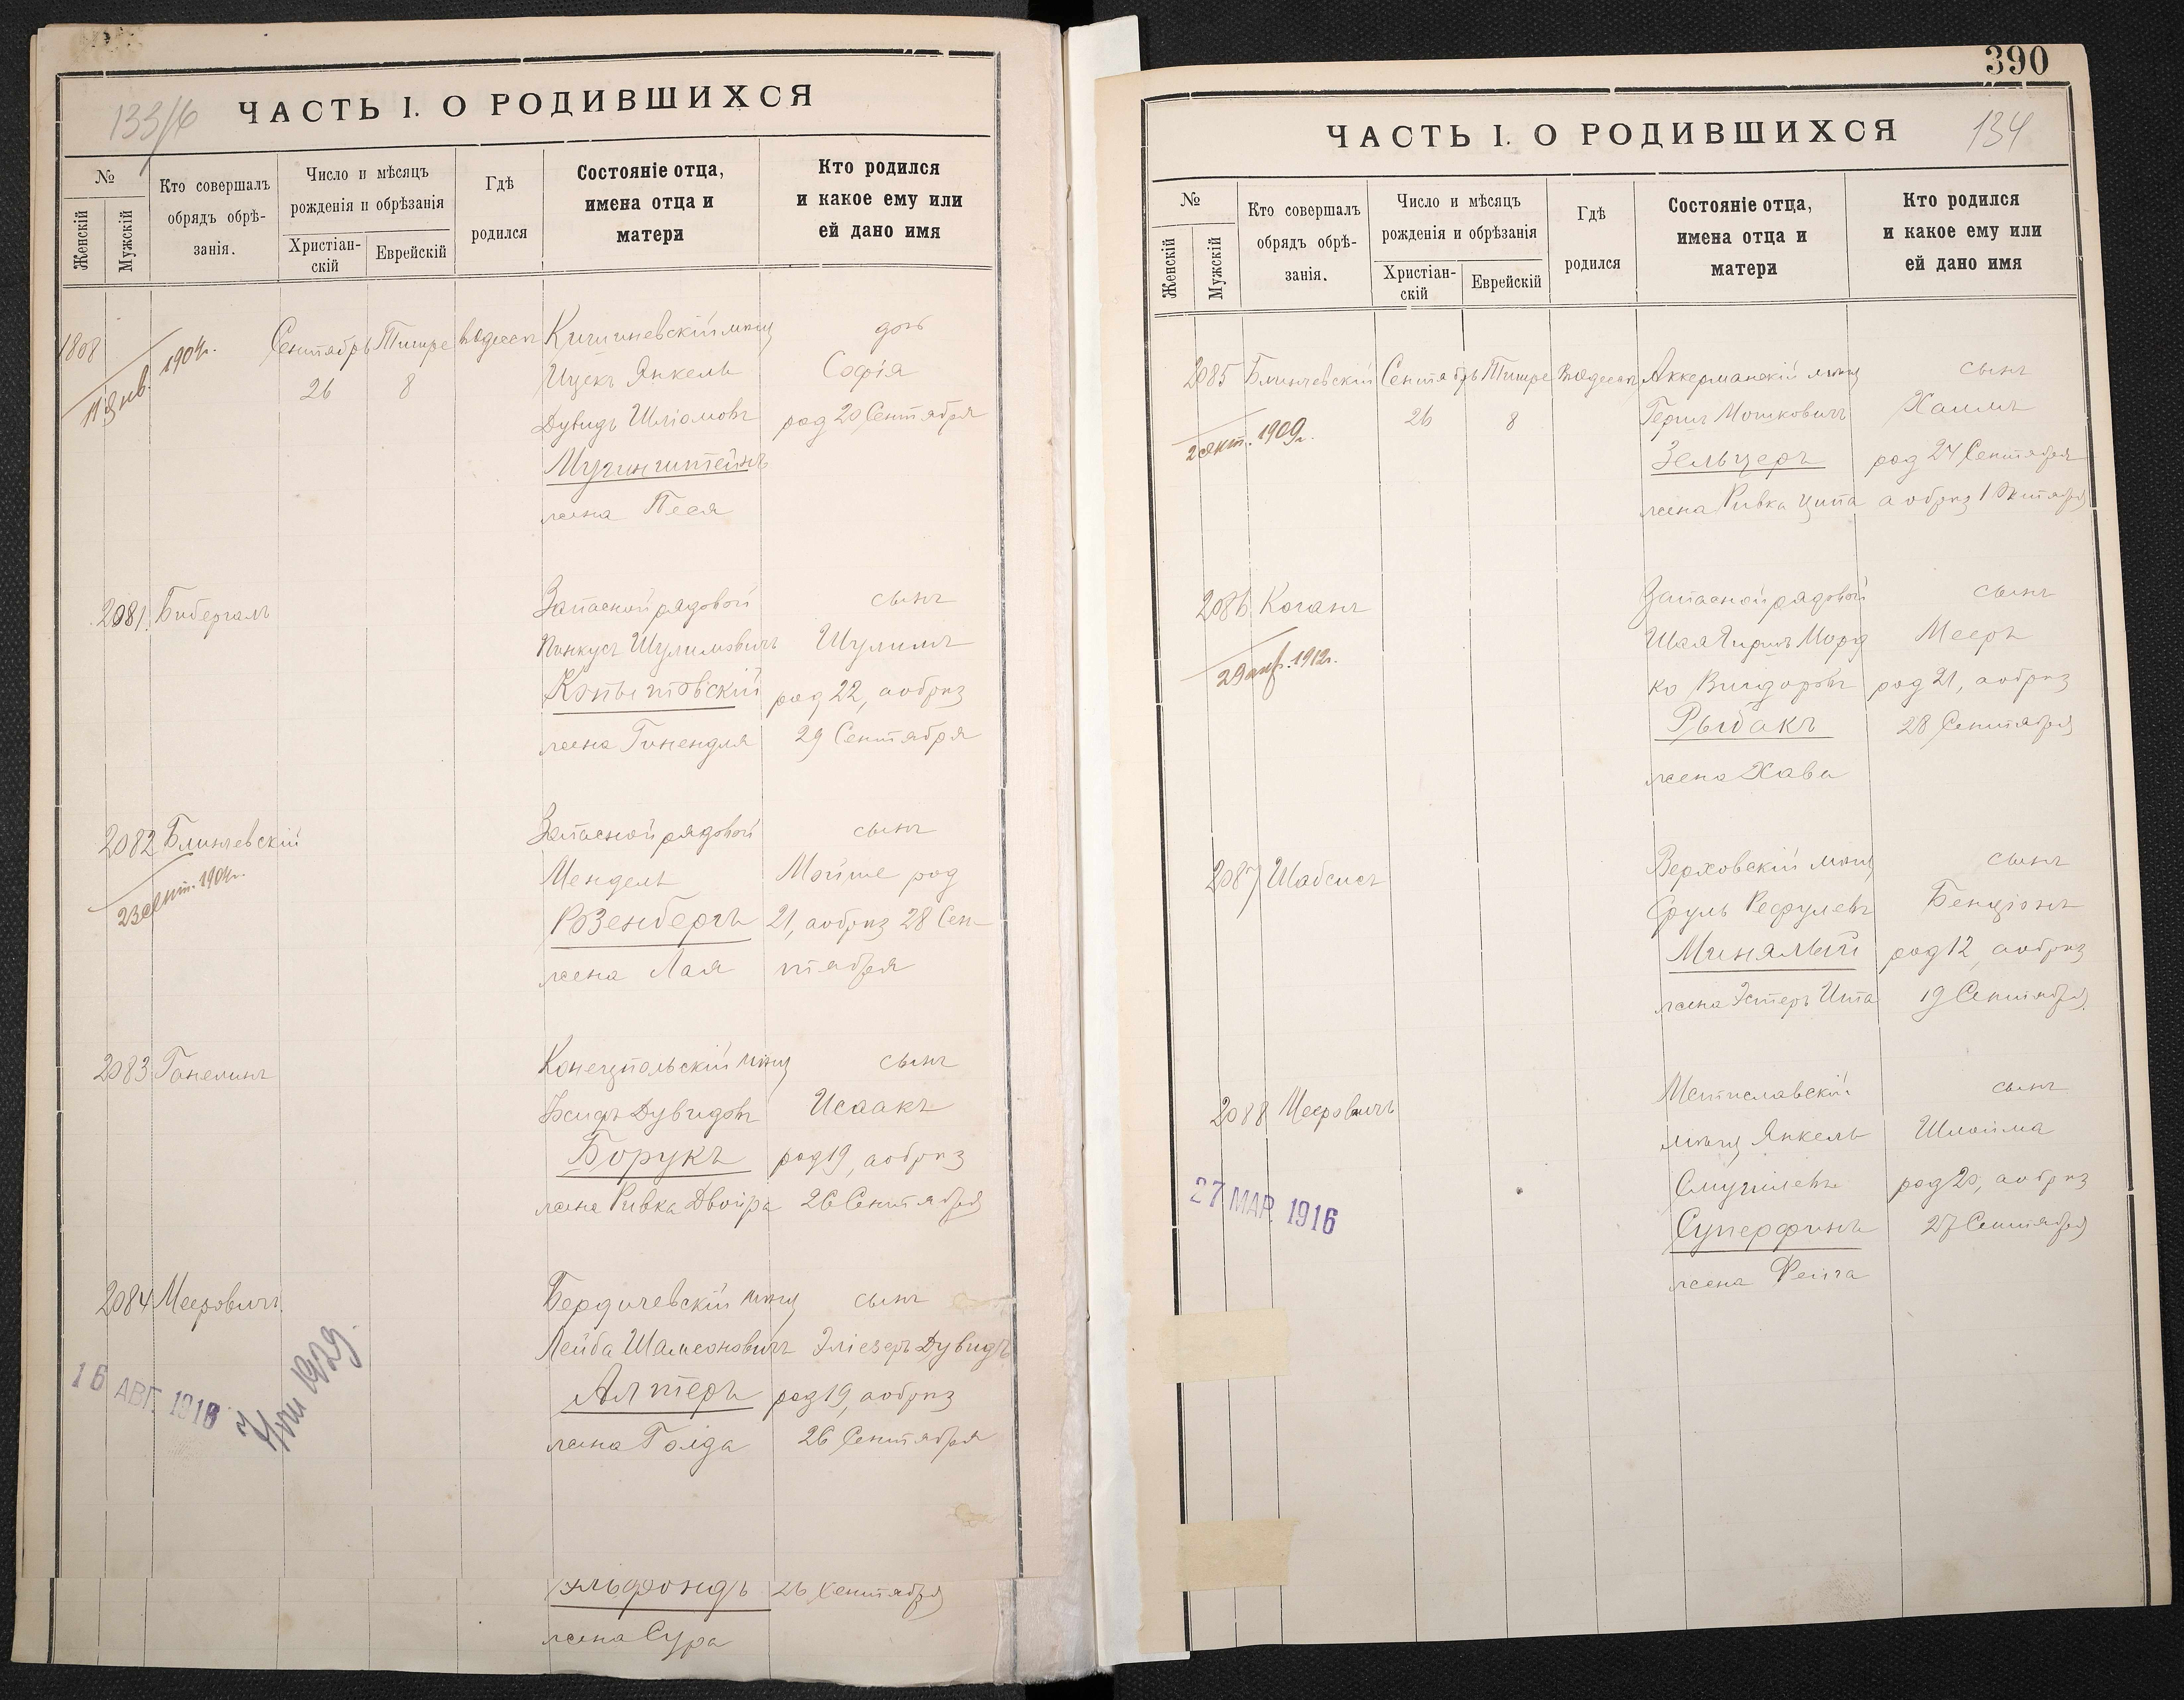 133/6
ЧАСТЬ I. О РОДИВШИХСЯ
№
Женскій
Мужскій
Кто совершалъ
обрядъ обрѣ-
занія.
Число и мѣсяцъ
рожденія и обрѣзанія
Христіан-
скій
Еврейскій
Гдѣ
родился
Состояніе отца,
имена отца и
матери
Кто родился
и какое ему или
ей дано имя
1808
11 Янв. 1904г.
Сентябрь Тишре вОдессѣ Кишиневскій мѣщ дочь
26 8 Ицекъ Янкель Софія
Дувидъ Шліомовъ род 20 Сентября
жена Песя
2081 Бибергалъ Запасной рядовой сынъ
Пинкусъ Шулимовичъ Шулимъ
Копытовскій род 22, а обрѣз
жена Гинендля 29 Сентября
2082 Блинчевскій Запасной рядовой сынъ
23 сент. 1904г.
Мендель Мойше род
Розенбергъ 21, а обрѣз 28 Сен-
жена Лая тября
2083 Ганелинъ Конецпольскій мѣщ сынъ
Дувидовъ Исаакъ
Борукъ род 19, а обрѣз
жена Ривка Двойра 26 Сентября
2084 Мееровичъ Бердичевскій мѣщ сынъ
Лейба Шамсоновичъ Эліезеръ Дувидъ
Алтеръ род 19, а обрѣз
жена Голда 26 Сентября
16 АВГ. 1916
1929
26 Сентября
жена Сура
390
134
ЧАСТЬ I. О РОДИВШИХСЯ
№
Женскій
Мужскій
Кто совершалъ
обрядъ обрѣ-
занія.
Число и мѣсяцъ
рожденія и обрѣзанія
Христіан-
скій
Еврейскій
Гдѣ
родился
Состояніе отца,
имена отца и
матери
Кто родился
и какое ему или
ей дано имя
2085 Блинчевскій Сентябрь Тишре вОдессѣ Аккерманскій мѣщ сынъ
2 окт. 1909г.
26 8 Герш Мошковичъ Хаимъ
Зельцеръ род 24 Сентября
жена Ривка Ципа а обрѣз 1 Октября
2086 Коганъ Запасной рядовой сынъ
29 апр. 1912г.
Шая Гиршъ Морд Мееръ
ко Вигдоровъ род 21, а обрѣз
Рыбакъ 28 Сентября
жена Хава
2087 Шабсисъ Верховскій мѣщ сынъ
Сруль Рефулевъ Бенціонъ
род 12, а обрѣз
жена Эстеръ Ита 19 Сентября
2088 Мееровичъ Мстиславскій сынъ
мѣщ Янкель Шлойма
Смуилевъ род 20, а обрѣз
Суперфинъ 27 Сентября
жена Фейга
27 МАР. 1916